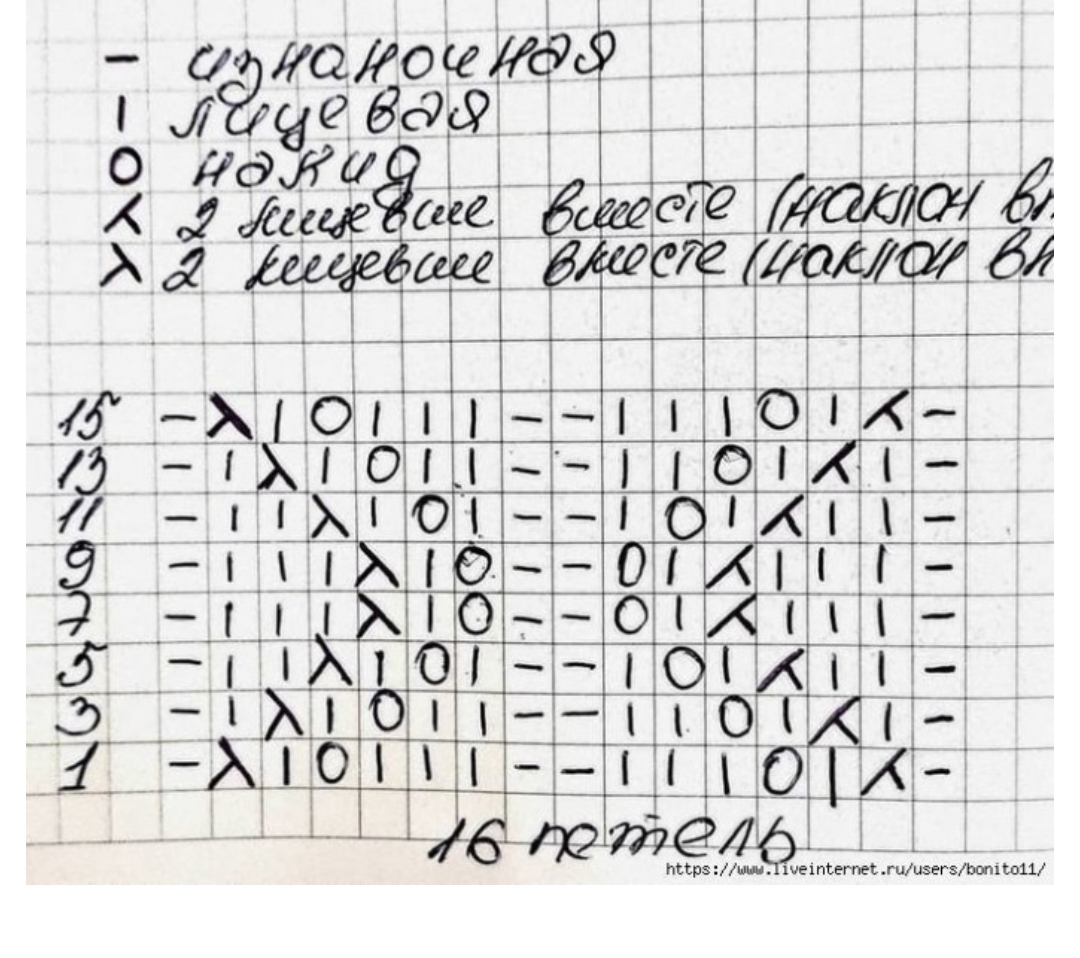 − изнаночная
| лицевая
O накид
⋌ 2 лицевые вместе (наклон вп
λ 2 лицевые вместе (наклон вл
15 − λ | O | | | − − | | | O | ⋌ −
13 − | λ | O | | − − | | O | ⋌ | −
11 − | | λ | O | − − | O | ⋌ | | −
9 − | | | λ | O − − O | ⋌ | | | −
7 − | | | λ | O − − O | ⋌ | | | −
5 − | | λ | O | − − | O | ⋌ | | −
3 − | λ | O | | − − | | O | ⋌ | −
1 − λ | O | | | − − | | | O | ⋌ −
16 петель
https://www.liveinternet.ru/users/bonito11/